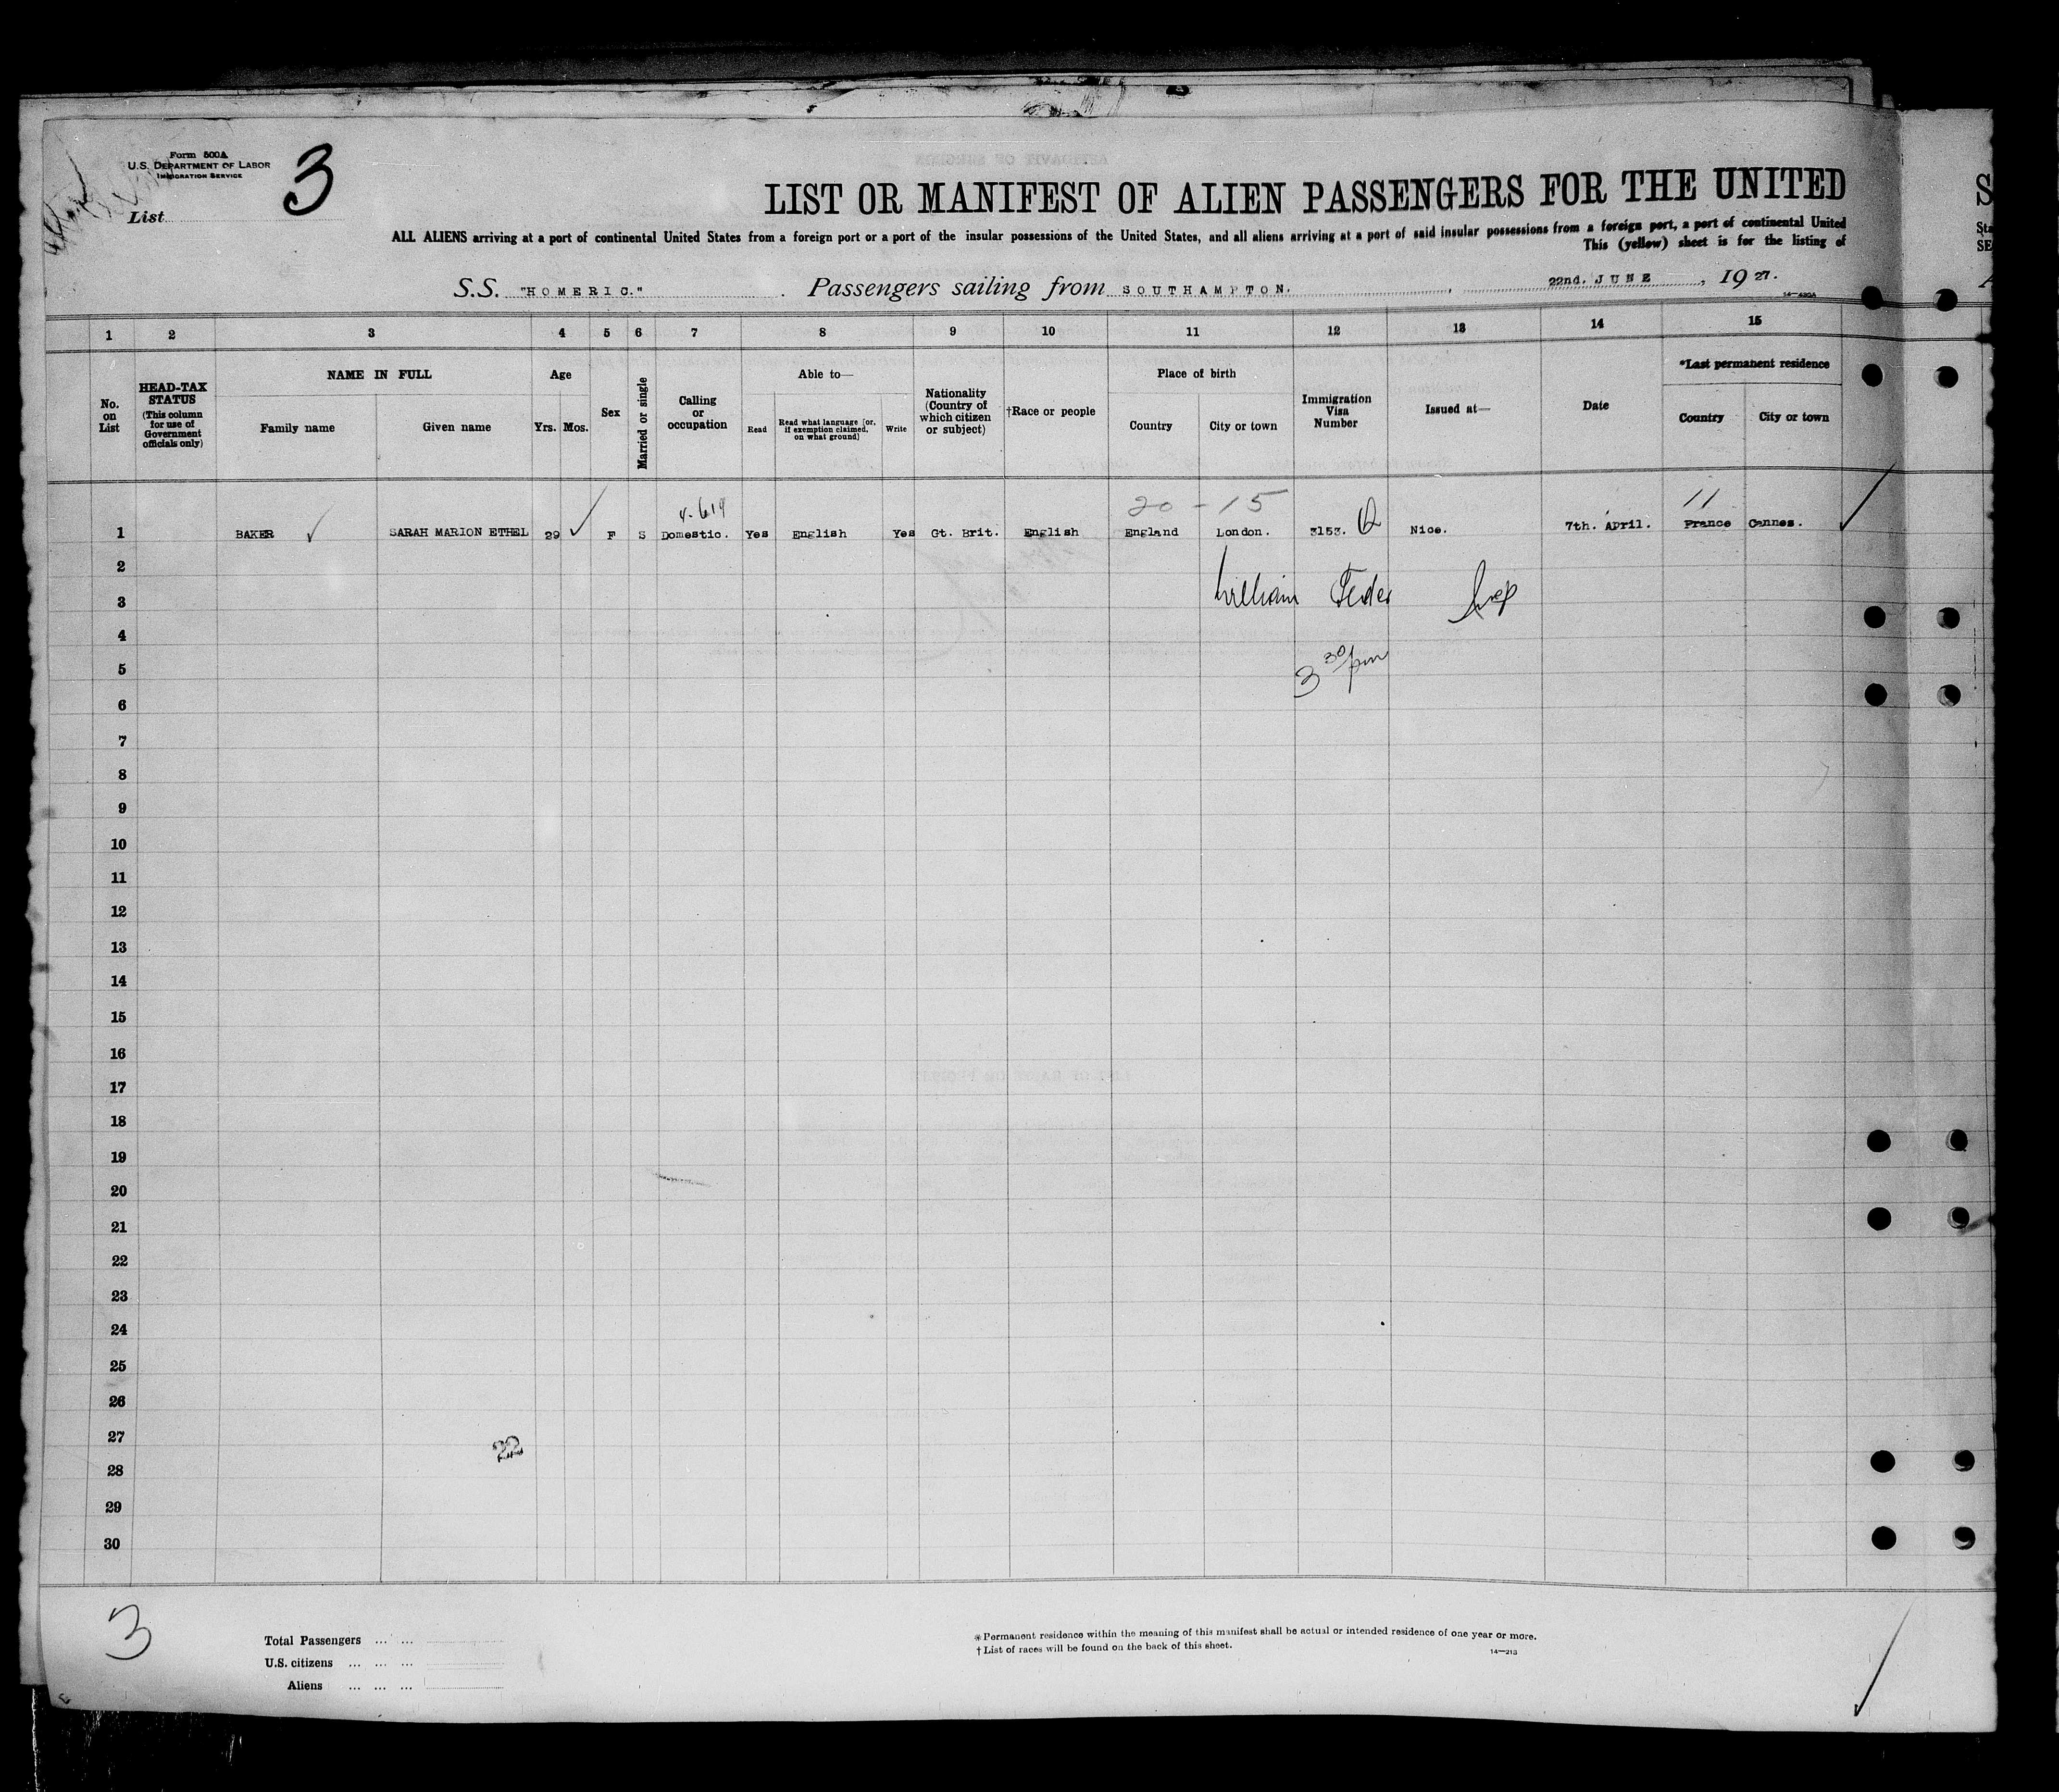 Form 500A
U.S. DEPARTMENT OF LABOR
IMMIGRATION SERVICE
List 3
LIST OR MANIFEST OF ALIEN PASSENGERS FOR THE UNITED
ALL ALIENS arriving at a port of continental United States from a foreign port or a port of the insular possessions of the United States, and all aliens arriving at a port of said insular possessions from a foreign port, a port of continental United
This (yellow) sheet is for the listing of
S.S. "HOMERIC." Passengers sailing from SOUTHAMPTON. , 22nd. JUNE , 19 27.
14—430A
1 2 3 4 5 6 7 8 9 10 11 12 13 14 15
No. on List
HEAD-TAX STATUS (This column for use of Government officials only)
NAME IN FULL
Family name Given name
Age
Yrs. Mos.
Sex
Married or single
Calling or occupation
Able to—
Read Read what language [or, if exemption claimed, on what ground] Write
Nationality (Country of which citizen or subject)
†Race or people
Place of birth
Country City or town
Immigration Visa Number
Issued at—
Date
*Last permanent residence
Country City or town
4-619 20 - 15 11
1 BAKER SARAH MARION ETHEL 29 F S Domestic. Yes English Yes Gt. Brit. English England London. 3153. Q Nice. 7th. April. France Cannes.
2
3 William
4
5 3 30/pm
6
7
8
9
10
11
12
13
14
15
16
17
18
19
20
21
22
23
24
25
26
27
22
28
29
30
3
Total Passengers ... ...
U.S. citizens ... ... ...
Aliens ... ... ...
*Permanent residence within the meaning of this manifest shall be actual or intended residence of one year or more.
†List of races will be found on the back of this sheet.
14—213